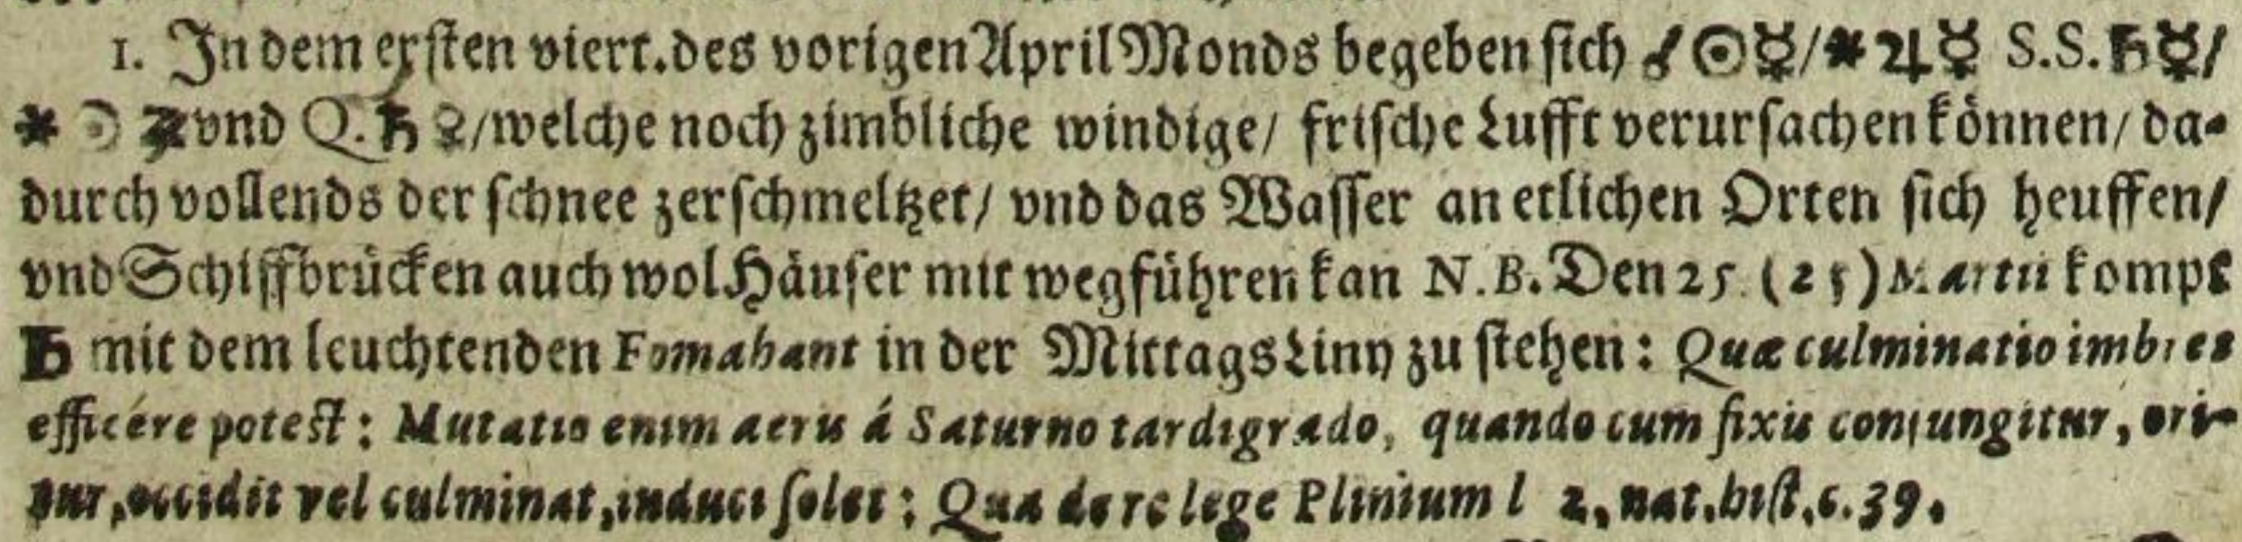 1. In dem ersten viert. des vorigen April Monds begeben sich ☌ ☉ ☿/ ⚹ ♃ ☿ S.S. ♄ ☿/
⚹ ☉ vnd Q. ♄ ♀/ welche noch zimbliche windige/ frische Lufft verursachen können/ da-
durch vollends der schnee zerschmeltzet/ vnd das Wasser an etlichen Orten sich heuffen/
vnd Schiffbrücken auch wol Häuser mit wegführen kan N.B. Den 25. (25) Martii kompt
♄ mit dem leuchtenden Fomahant in der Mittags Liny zu stehen: Quæ culminatio imbres
efficére potest: Mutatio enim aeris á Saturno tardigrado, quando cum fixis conjungitur, ori-
tur, occidit vel culminat, induci solet: Qua de re lege Plinium l 2, nat. hist. c. 39.